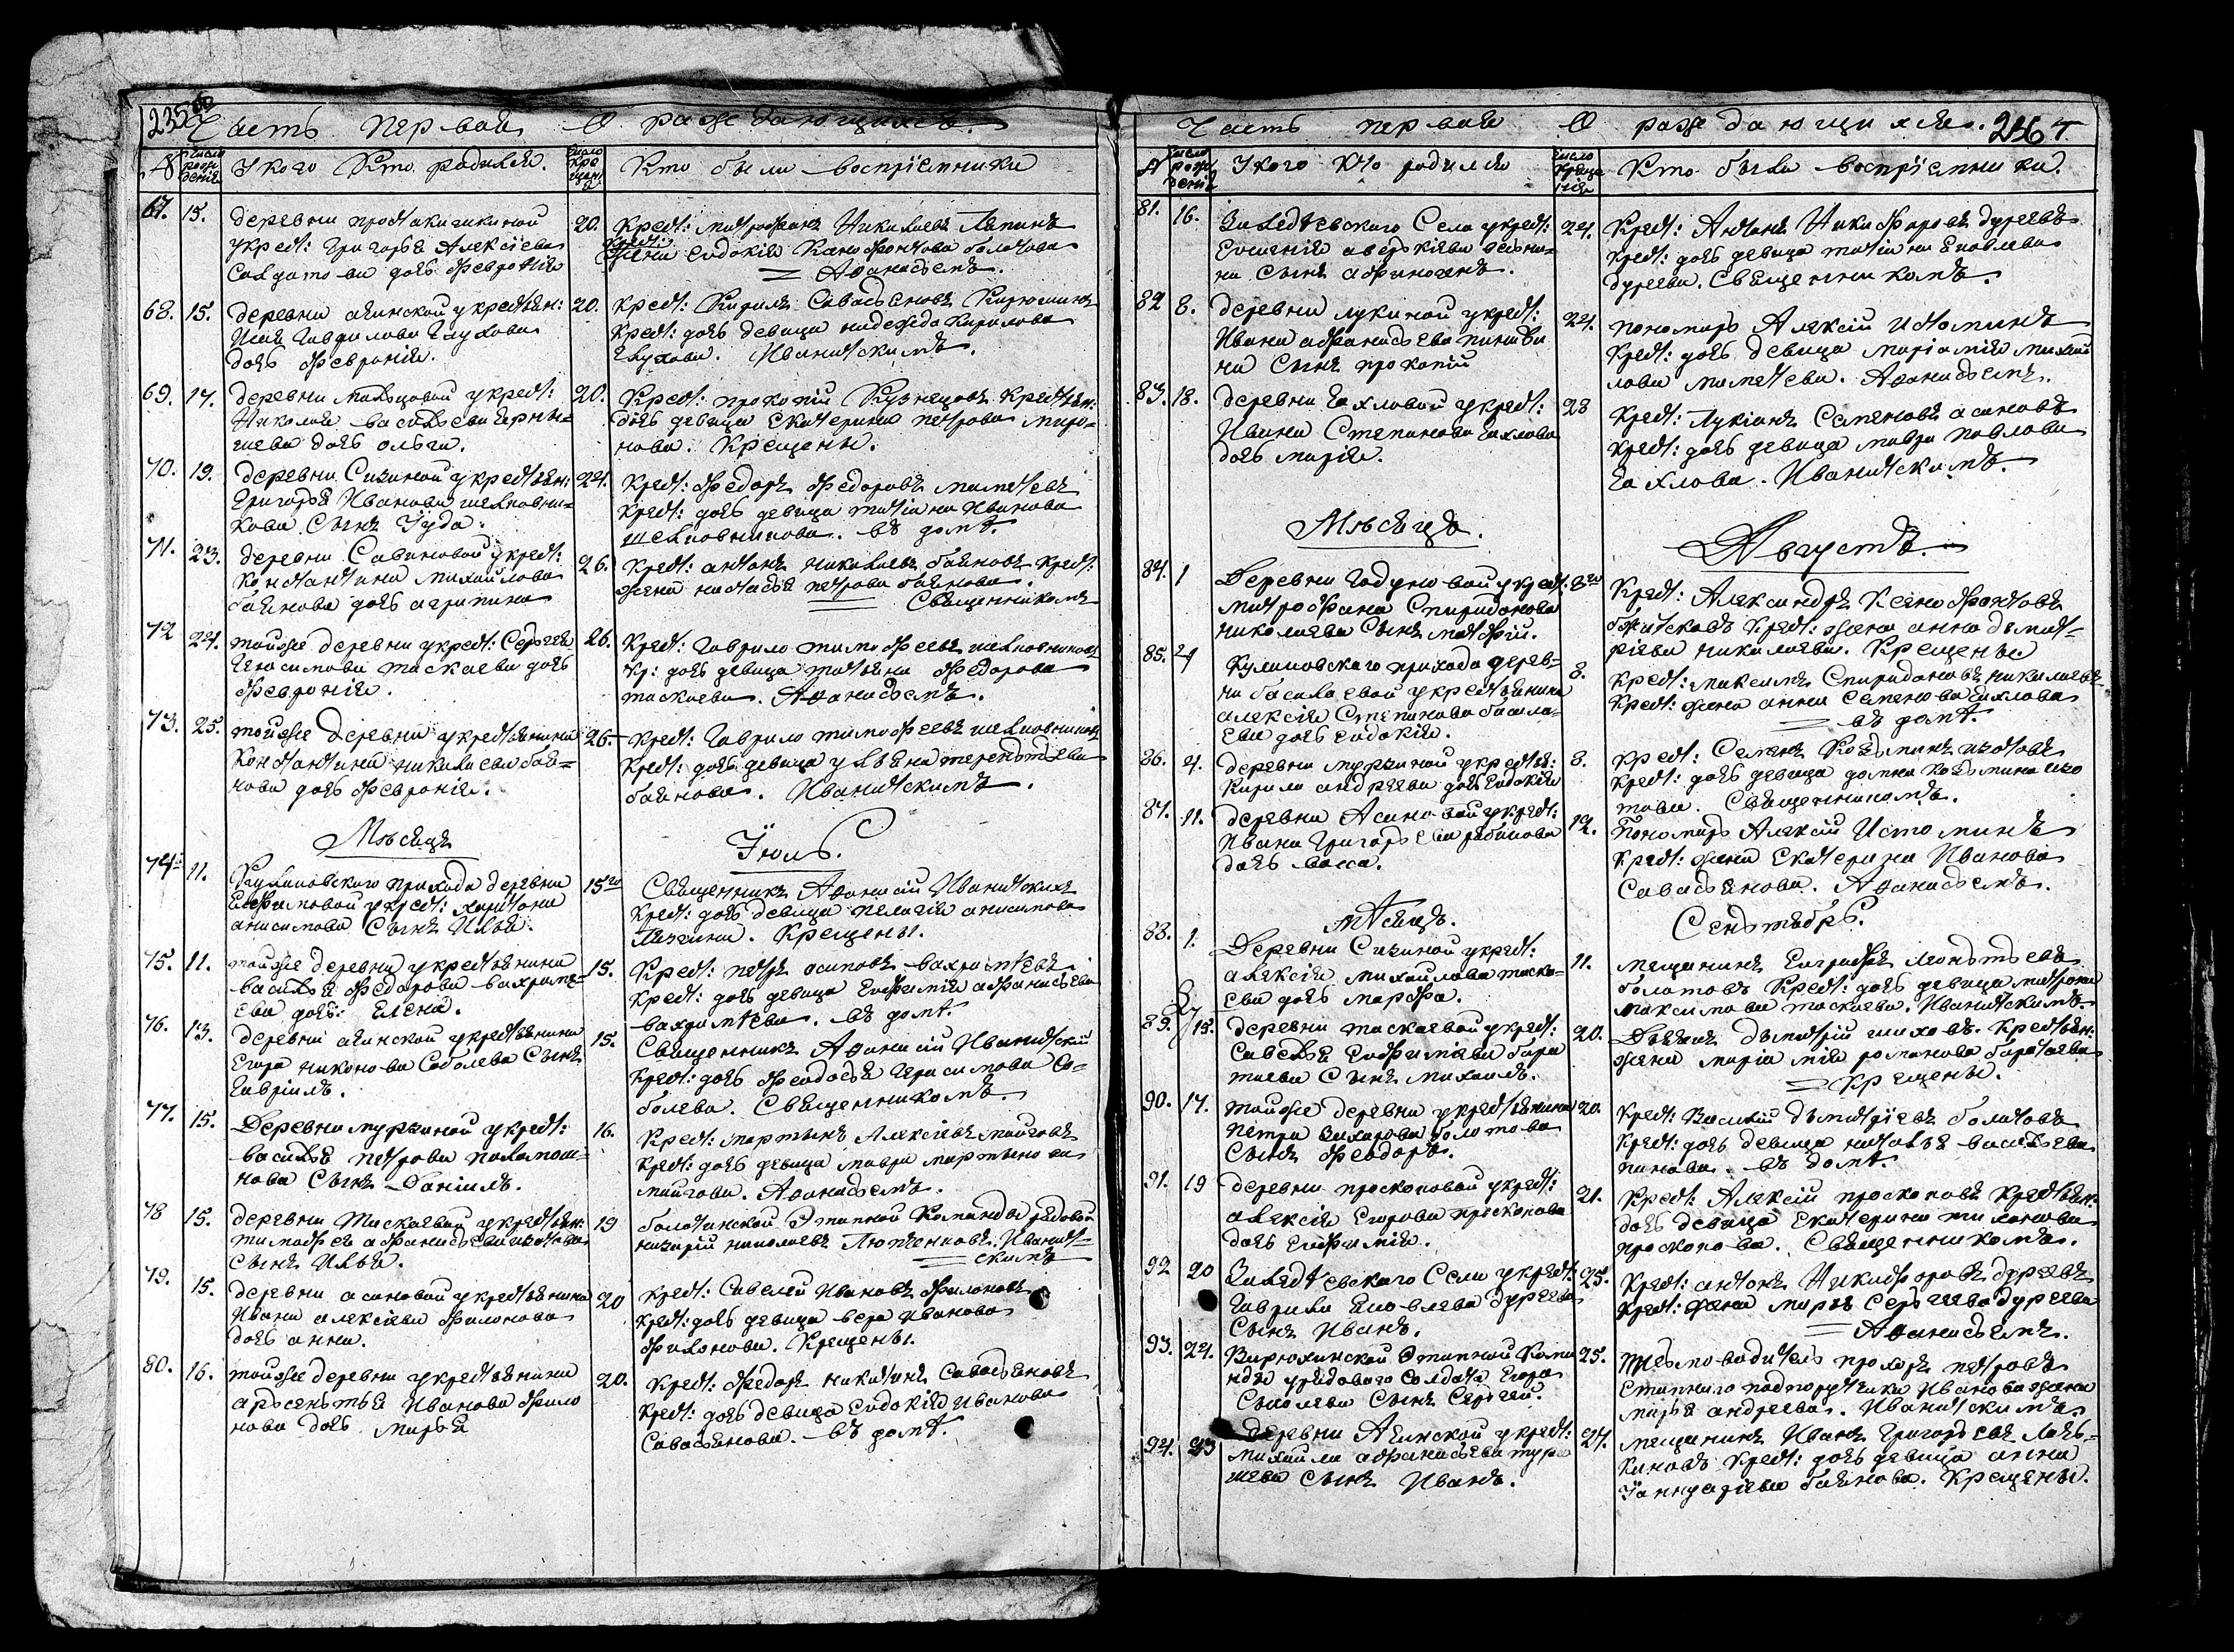 235 об
Часть первая О раждающихся.
№
Число рождения
У кого Кто родился.
Число крещения
Кто были воспріемники
67. 15. деревни
у крест: Григорья Алексіева
дочь Февронія
20. Крест: Митрофанъ Николаевъ Лапинъ
Крест: жена Евдокія Ксенофонтова Болотова
Афанасьемъ.
68. 15. деревни аяинской у крестьян:
Ильи Гаврилова Глухова
дочь Февронія.
20. крест: Кирилъ Савасьяновъ Кирюшинъ
Крест: дочь девица надежда Кирилова
Глухова. Иванитскимъ.
69. 17. деревни мальцовой у крест:
Николая васильева Черны-
шева дочь ольга.
20. Крест: прокопій Кузнецовъ Крестьян:
дочь девица Екатерина петрова миро-
нова. Крещены.
70. 19. деревни Сизиной у крестьян:
Григорья Иванова шелковни-
кова Сынъ Іуда.
24. Крест: Федоръ Федоровъ маметевъ
крест: дочь девица татіана Иванова
шелковникова. въ домѣ.
71. 23. деревни Савиновой у крест:
Константина михайлова
баянова дочь агрипина
26. Крест: антонъ николаевъ баяновъ крест:
жена настасья петрова баянова.
Священникомъ
72 24. тойже деревни у крест: Сергея
Герасимова таскаева дочь
Февронія.
26. Крест: Гаврило тимофеевъ шелковниковъ
кр: дочь девица татьяна Федорова
таскаева. Афанасьемъ.
73. 25. тойже деревни у крестьянина
Константина николаева бая-
нова дочь Февронія.
26. Крест: Гаврило тимофеевъ шелковниковъ
Крест: дочь девица ульяна терентьева
баянова. Иванитскимъ.
Мѣсяцъ
Іюль.
74. 11. Куликовского прихода деревни
Ефимовой у крест: харитона
анисимова Сынъ Илья.
15го Священникъ Афанасій Иванитскихъ
Крест: дочь девица пелагія анисимова
Крещены.
75. 11. тойже деревни у крестьянина
василья Федорова вахраме-
ева дочь: Елена.
15. Крест: петръ осиповъ вахраметевъ
Крест: дочь девица Евфимія афанасьева
вахраметева. въ домѣ.
76. 13. деревни аяинской у крестьянина
Егора никонова Соболева Сынъ
Гавріилъ.
15. Священникъ Афанасій Иванитскій
Крест: дочь Феодосья Герасимова Со-
болева. Священникомъ.
77. 15. Деревни мурзиной у крест:
василья петрова паламош-
нова Сынъ Даніилъ.
16. Крест: мартынъ Алексіевъ майговъ
крест: дочь девица мавра мартынова
майгова. Афанасьемъ.
78 15. деревни Таскаевой у крестьян:
тимофея афанасьева изотова
Сынъ Илья.
19 болотинской Этапной Команды рядовой
назарій николаевъ Лютенковъ. Иванит-
скимъ
79. 15. деревни асановой у крестьянина
Ивана алексіева Филонова
дочь анна.
20 Крест: Савелей Ивановъ Филоновъ
крест: дочь девица вера Иванова
Филонова. Крещены.
80. 16. тойже деревни у крестьянина
арсентья Иванова Фило
нова дочь марья
20. Крест: Федоръ никитинъ Савасьяновъ
Крест: дочь девица Евдокія Иванова
Савасьянова. въ домѣ.
Часть первая О раждающихся. 236
№
Число рожденія
У кого кто родился
Число крещенія
Кто были воспріемники.
81. 16. Села у крест:
Евменія аверкіева
Сынъ афиногенъ.
24. Крест: Антонъ Никифоровъ дуреевъ
Крест: дочь девица татіана Еновлева
дуреева. Священникомъ.
82 8. деревни лукиной у крест:
Ивана афанасьева
Сынъ прокопій
24. пономарь Алексій Истоминъ
Крест: дочь девица маріамія михай
лова маметева. Афанасьемъ.
83. 18. деревни Чахловой у крест:
Ивана Степанова Чахлова
дочь марія.
28 Крест: Лукіанъ Семеновъ асановъ
крест: дочь девица мавра павлова
Чахлова. Иванитскимъ.
Мѣсяцъ.
Августъ.
84. 1 Деревни Годуновой у крест:
митрофана Спиридонова
николаева Сынъ матфій.
8го Крест: Александръ Ксенофонтовъ
Крест: жена анна дмит-
ріева николаева. Крещены.
85. 4 Куликовского прихода дерев-
ни басалаевой у крестьянина
алексія Степанова басала-
ева дочь евдокія.
8. крест: максимъ Спиридоновъ николаевъ
крест: жена анна Семенова Чахлова
въ домѣ.
86. 4. деревни мурзиной у крестья:
Кирила андреева дочь Евдокія
8. крест: Семенъ Козминъ изотовъ
крест: дочь девица домна Козмина изо
това. Священникомъ.
87. 11. деревни Асановой у крест:
Ивана Григорьева рабинова
дочь васса.
12. Пономарь Алексій Истоминъ
Крест: жена Екатерина Иванова
Савасьянова. Афанасьемъ.
мѣсяцъ.
Сентябрь.
88. 1. Деревни Сизиной у крест:
алексія михайлова таска-
ева дочь марфа.
11. мещанинъ Евграфъ леонтьевъ
болотовъ Крест: дочь девица матрона
максимова таскаева. Иванитскимъ
89. 15. деревни таскаевой у крест:
Савелья Евфиміева бара
таева Сынъ михаилъ.
20. Дьячекъ дьмитрій шиховъ. Крестьян:
жена маріамія романова баратаева
Крещены.
90. 17. тойже деревни у крестьянина
петра захарова болотова
Сынъ Феодоръ.
20. крест: Василій дьмитріевъ болотовъ
крест: дочь девица наталья васильева
панова. въ домѣ.
91. 19 деревни проскоковой у крест:
алексія Егорова проскокова
дочь Евфимія.
21. Крест: Алексій проскоковъ крестьян:
дочь девица Екатерина тиханова
проскокова. Священникомъ.
92 20 Села у крест:
Гаврила Еновлева дуреева
Сынъ Иванъ.
25. Крест: антонъ Никифоровъ дуреевъ
крест: жена марья Сергеева дуреева
Афанасьемъ.
93. 24. Вирюхинской Этапной Кома
нды у рядового Солдата Егора
Соколева Сынъ Сергей.
25. Письмоводитель прохоръ петровъ
Етапнаго подпоручика Иванова жена
марья андреева. Иванитскимъ.
94. 23 деревни Аяинской у крест:
михайла афанасьева
Сынъ Иванъ.
27. мещанинъ Иванъ Григорьевъ
Крест: дочь девица анна
Іаннуаріева баянова. Крещены.